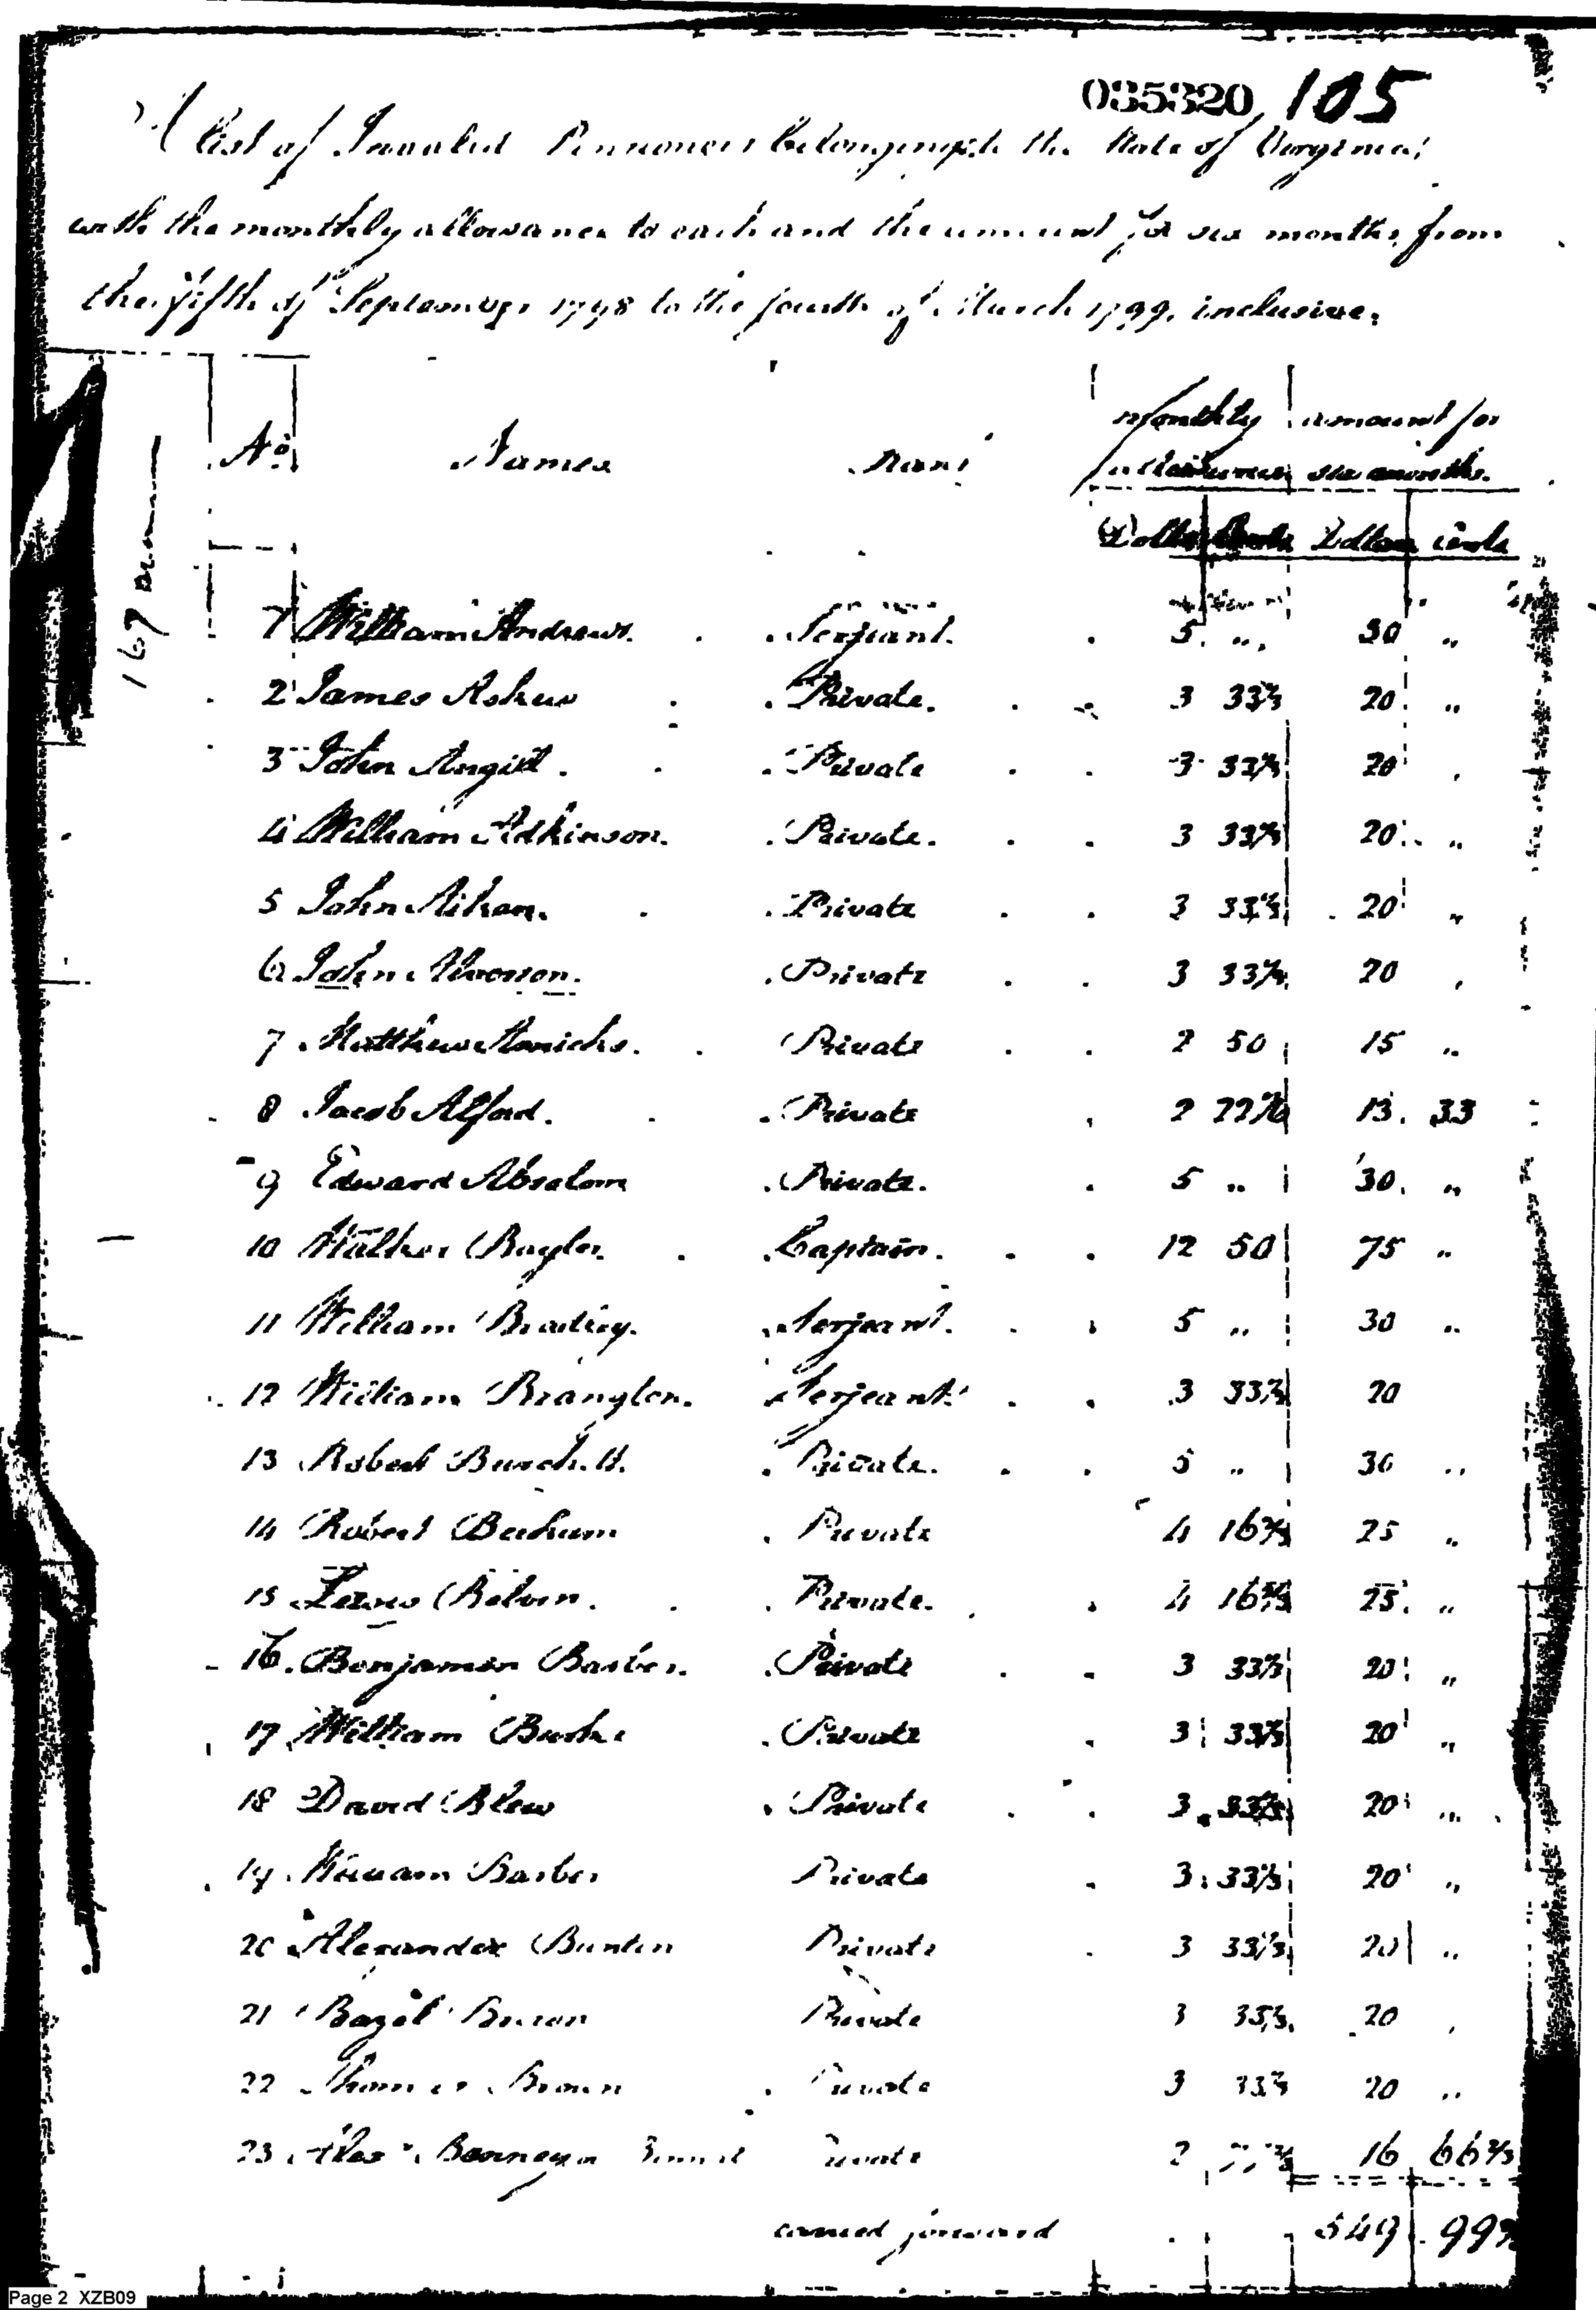 035320 105
A list of Invalid Pensioners belonging to the State of Virginia,
with the monthly allowance to each and the amount for six months from
the fifth of September 1798 to the fourth of March 1799, inclusive.
No. Names Rank monthly allowance amount for six months.
Dolls Cents Dollars Cents
167
1 William Andrews. Serjeant. 5 " 30 "
2 James Askew Private. 3 33⅓ 20 "
3 John Private 3 33⅓ 20 "
4 William Adkinson. Private. 3 33⅓ 20 "
5 John Aikan. Private 3 33⅓ 20 "
6 John Private 3 33⅓ 20 "
7 Matthew Private 2 50 15 "
8 Jacob Alford. Private 2 13 33
9 Edward Absalom Private. 5 " 30 "
10 Walker Baylor. Captain. 12 50 75 "
11 William Serjeant. 5 " 30 "
12 William Serjeant. 3 33⅓ 20
13 Robert Private. 5 " 30 "
14 Robert Private 4 16⅔ 25 "
15 Lewis Private. 4 16⅔ 25 "
16 Benjamin Barber. Private 3 33⅓ 20 "
17 William Burke Private 3 33⅓ 20 "
18 David Blew Private 3 33⅓ 20 "
19 William Barber Private 3 33⅓ 20 "
20 Alexander Bunten Private 3 33⅓ 20 "
21 Bazil Brown Private 3 33⅓ 20 "
22 Thomas Brown Private 3 33⅓ 20 "
23 Alexr. Private 2 16 66⅔
carried forward 549 99
Page 2 XZB09